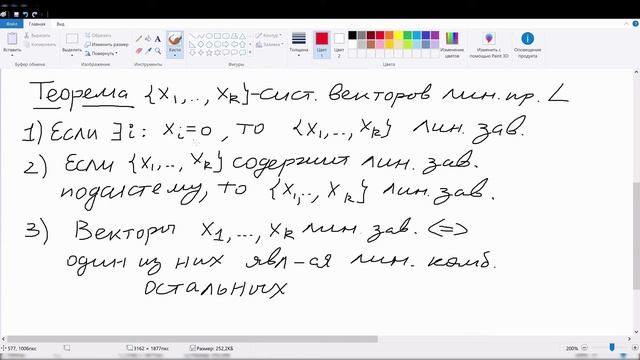 Файл Главная Вид
Вставить
Выделить
Обрезать
Изменить размер
Повернуть
Кисти
Фигуры
Контур
Заливка
Толщина
Цвет 1
Цвет 2
Изменение цветов
Изменить с помощью Paint 3D
Оповещение о продукте
Буфер обмена Изображение Инструменты Фигуры Цвета
Теорема {x1,.., xk}-сист. векторов лин. пр. L
1) Если ∃i: xi=0, то {x1,.., xk} лин. зав.
2) Если {x1,.., xk} содержит лин. зав.
подсистему, то {x1,.., xk} лин. зав.
3) Векторы x1,..., xk лин. зав. <=>
один из них явл-ая лин. комб.
остальных
577, 1006пкс 3162 × 1877пкс Размер: 252,2КБ 200%